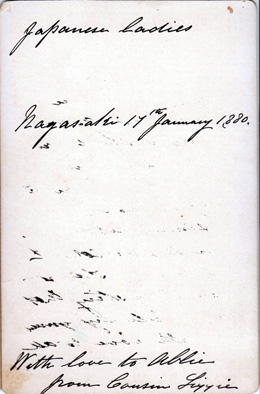 Japanese Ladies
Nagasaki 17th January 1880.
With love to Allie
from Cousin Lizzie